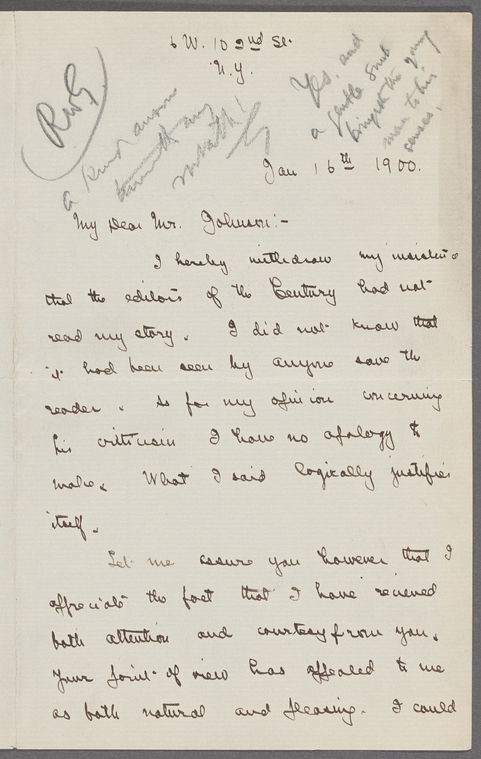 6 W. 102nd St.
N.Y.
RWG
a kind answer
turneth any
wrath!
Yes, and
a gentle snub
bringeth the young
man to his
senses.
Jan 16th 1900.
My Dear Mr. Johnson:-
I hereby withdraw my insistence
that the editors of the Century had not
read my story. I did not know that
it had been seen by anyone save the
reader. So far my opinion concerning
his criticism I have no apology to
make. What I said logically justifies
itself.
Let me assure you however that I
appreciate the fact that I have recieved
both attention and courtesy from you.
Your point of view has appealed to me
as both natural and pleasing. I could